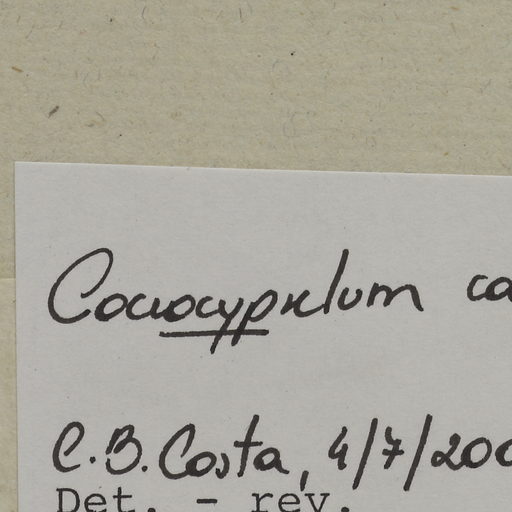 Coccocypselum ca
C.B. Costa, 4/7/200
Det. - rev.